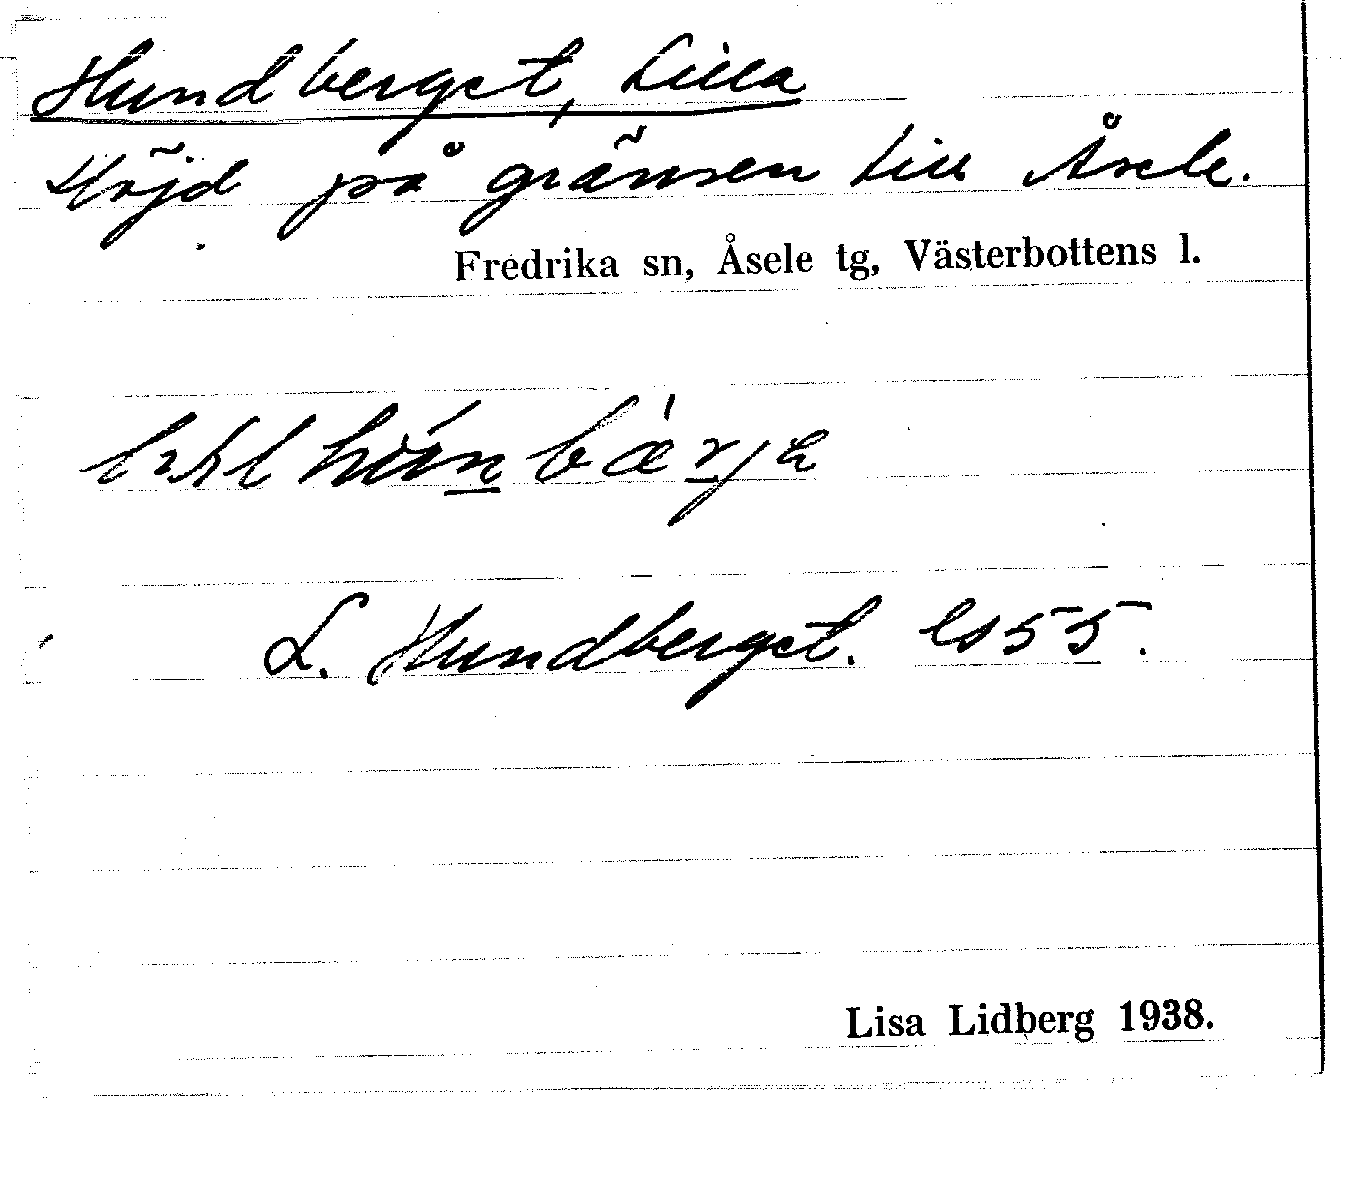 Hundberget, Lilla
Höjd på gränsen till Åsele.
Fredrika sn, Åsele tg, Västerbottens l.
L. Hundberget. 55.
Lisa Lidberg 1938.